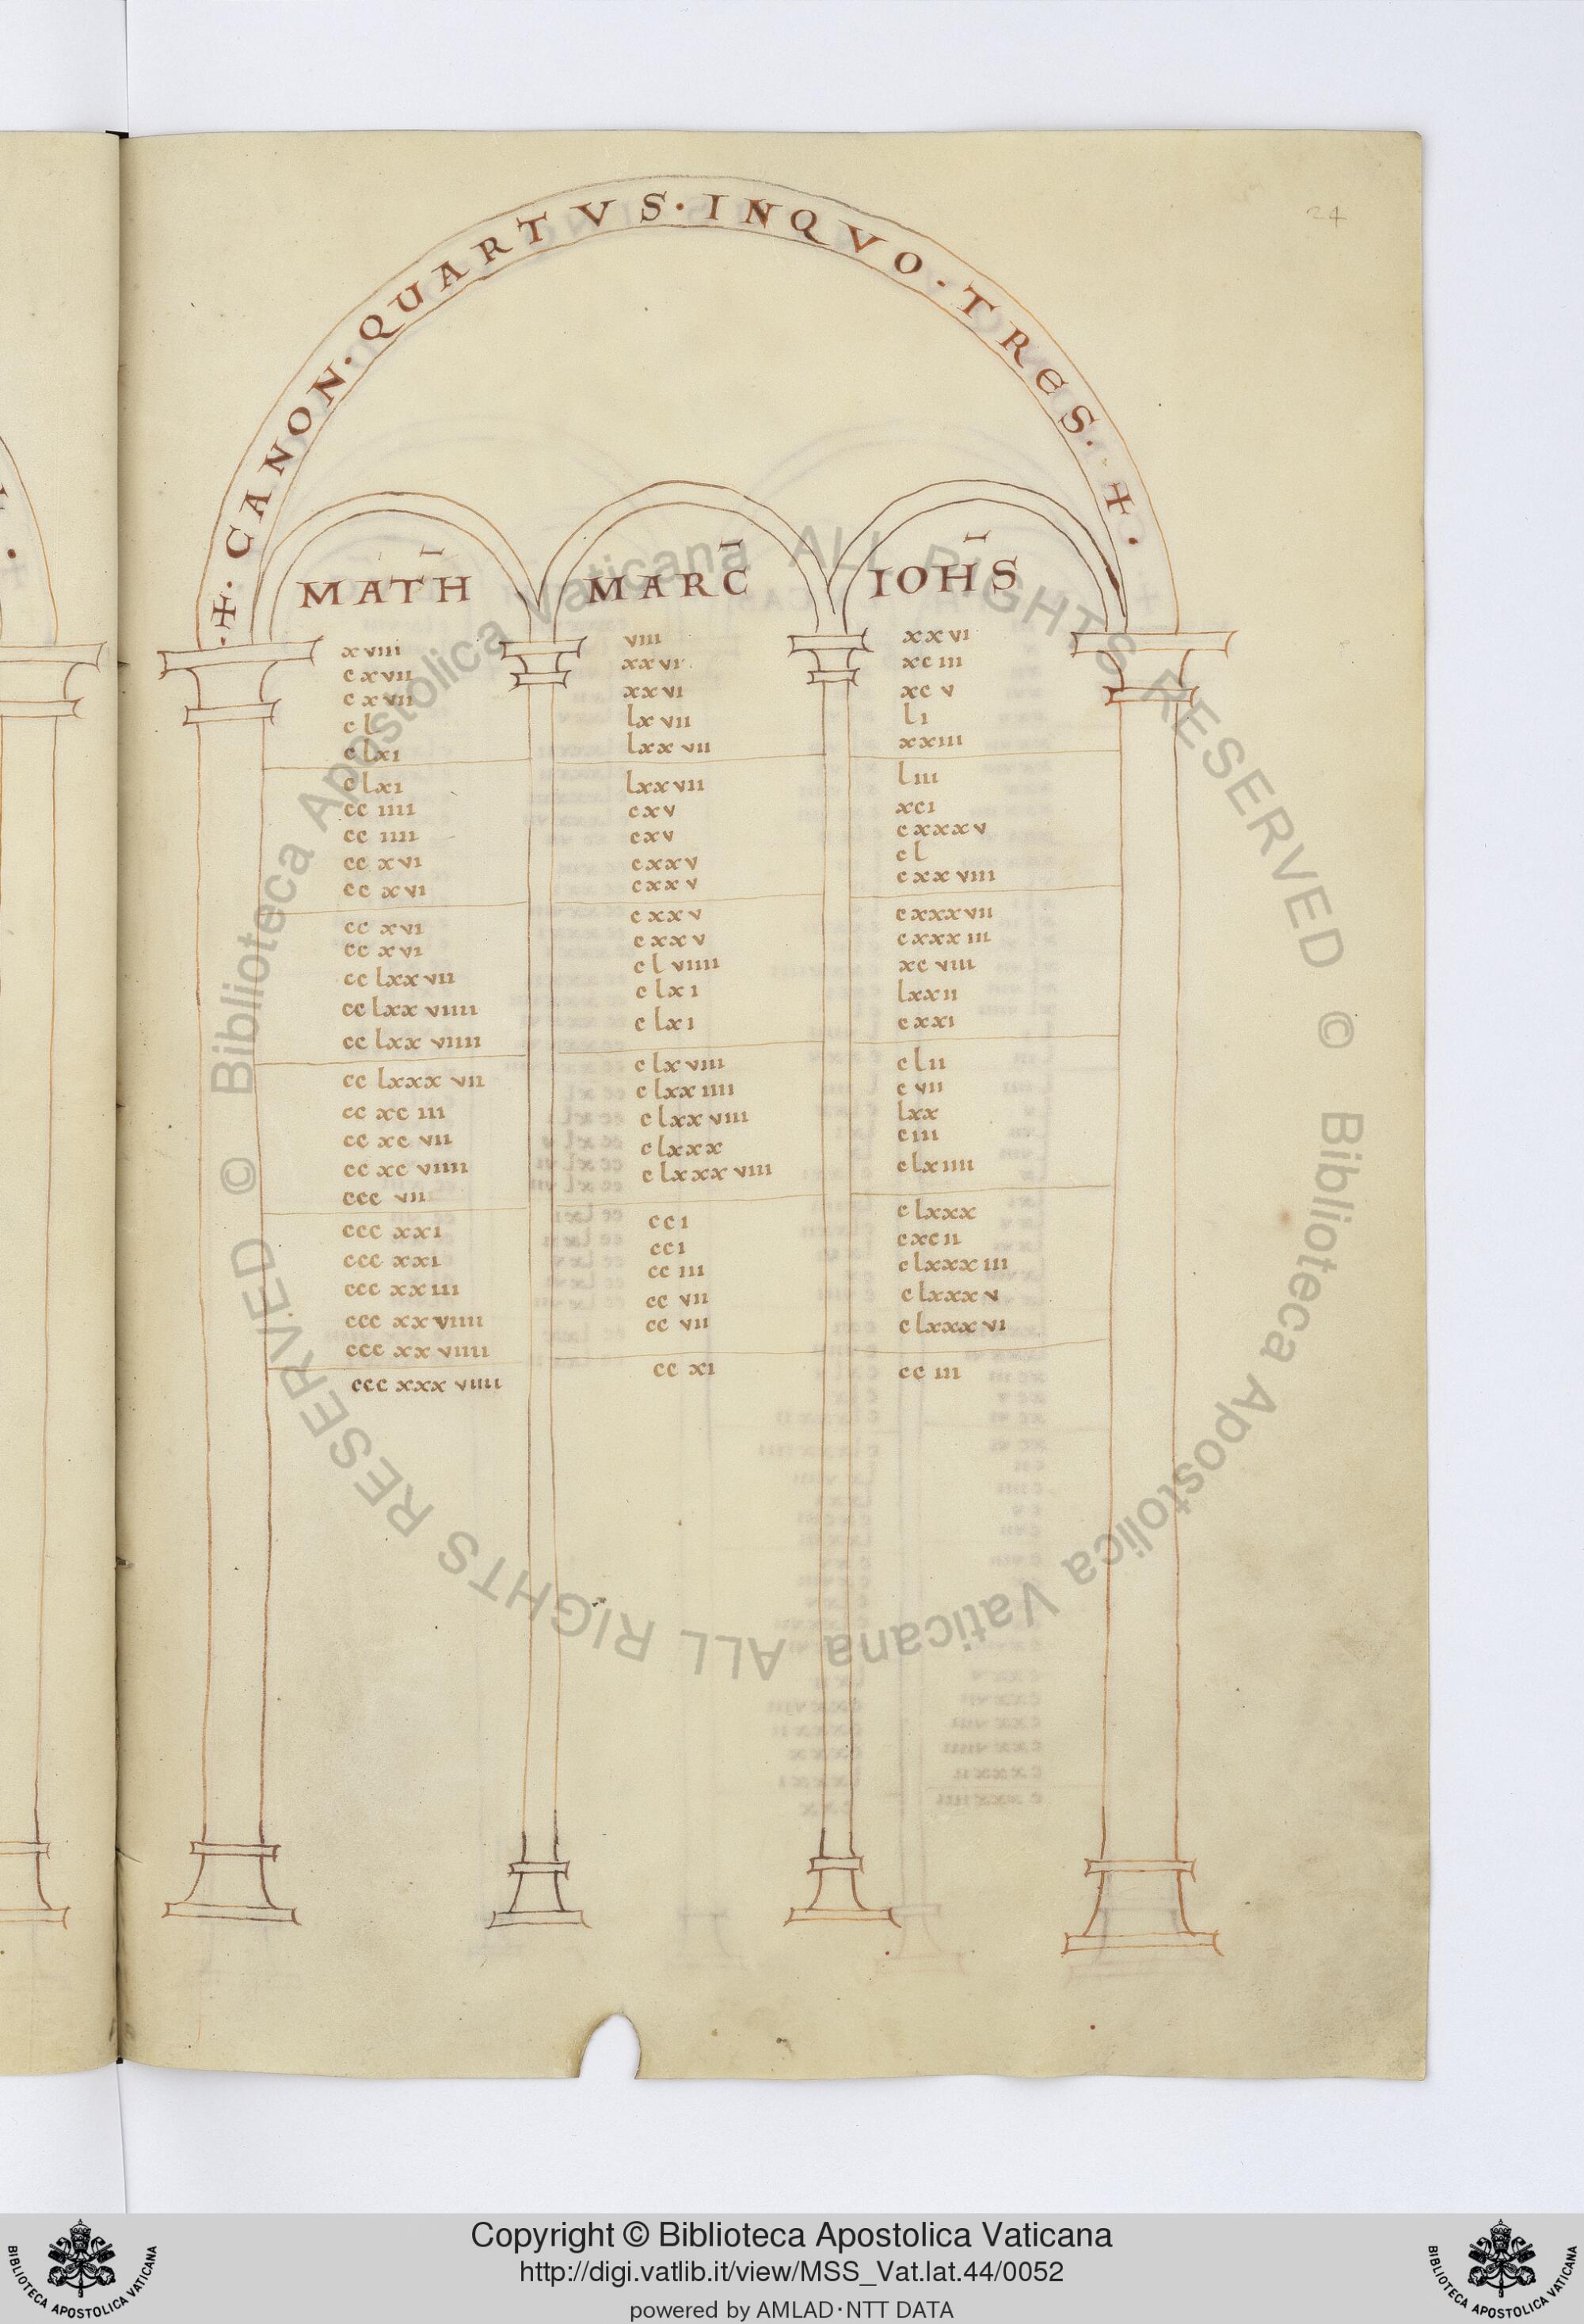 24
·+· CANON · QUARTVS · INQVO · TRES · + ·
MATH̄ MARC̄ IOH̄S
xviii viii xxvi
cxvii xxvi xciii
cxvii xxvi xcv
cl lxvii li
clxi lxxvii xxiii
clxi lxxvii liii
cciiii cxv xci
cciiii cxv cxxxv
ccxvi cxxv cl
ccxvi cxxv cxxviii
ccxvi cxxv cxxxvii
ccxvi cxxv cxxxiii
cclxxvii clviiii xcviii
cclxxviiii clxi lxxii
cclxxviiii clxi cxxi
cclxxxvii clxviii clii
ccxciii clxxiiii cvii
ccxcvii clxxviii lxx
ccxcviiii clxxx ciii
cccvii clxxxviii clxiiii
cccxxi cci clxxx
cccxxi cci cxcii
cccxxiii cciii clxxxiii
cccxxviiii ccvii clxxxv
cccxxviiii ccvii clxxxvi
cccxxxviiii ccxi cciii
© Biblioteca Apostolica Vaticana ALL RIGHTS RESERVED © Biblioteca Apostolica Vaticana ALL RIGHTS RESERVED
Copyright © Biblioteca Apostolica Vaticana
http://digi.vatlib.it/view/MSS_Vat.lat.44/0052
powered by AMLAD·NTT DATA
BIBLIOTECA APOSTOLICA VATICANA
BIBLIOTECA APOSTOLICA VATICANA